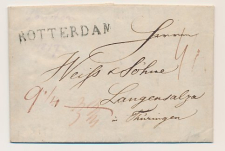 ROTTERDAM
Herrn
Weiß & Söhne
9 1/4
Langensalza
in Thüringen